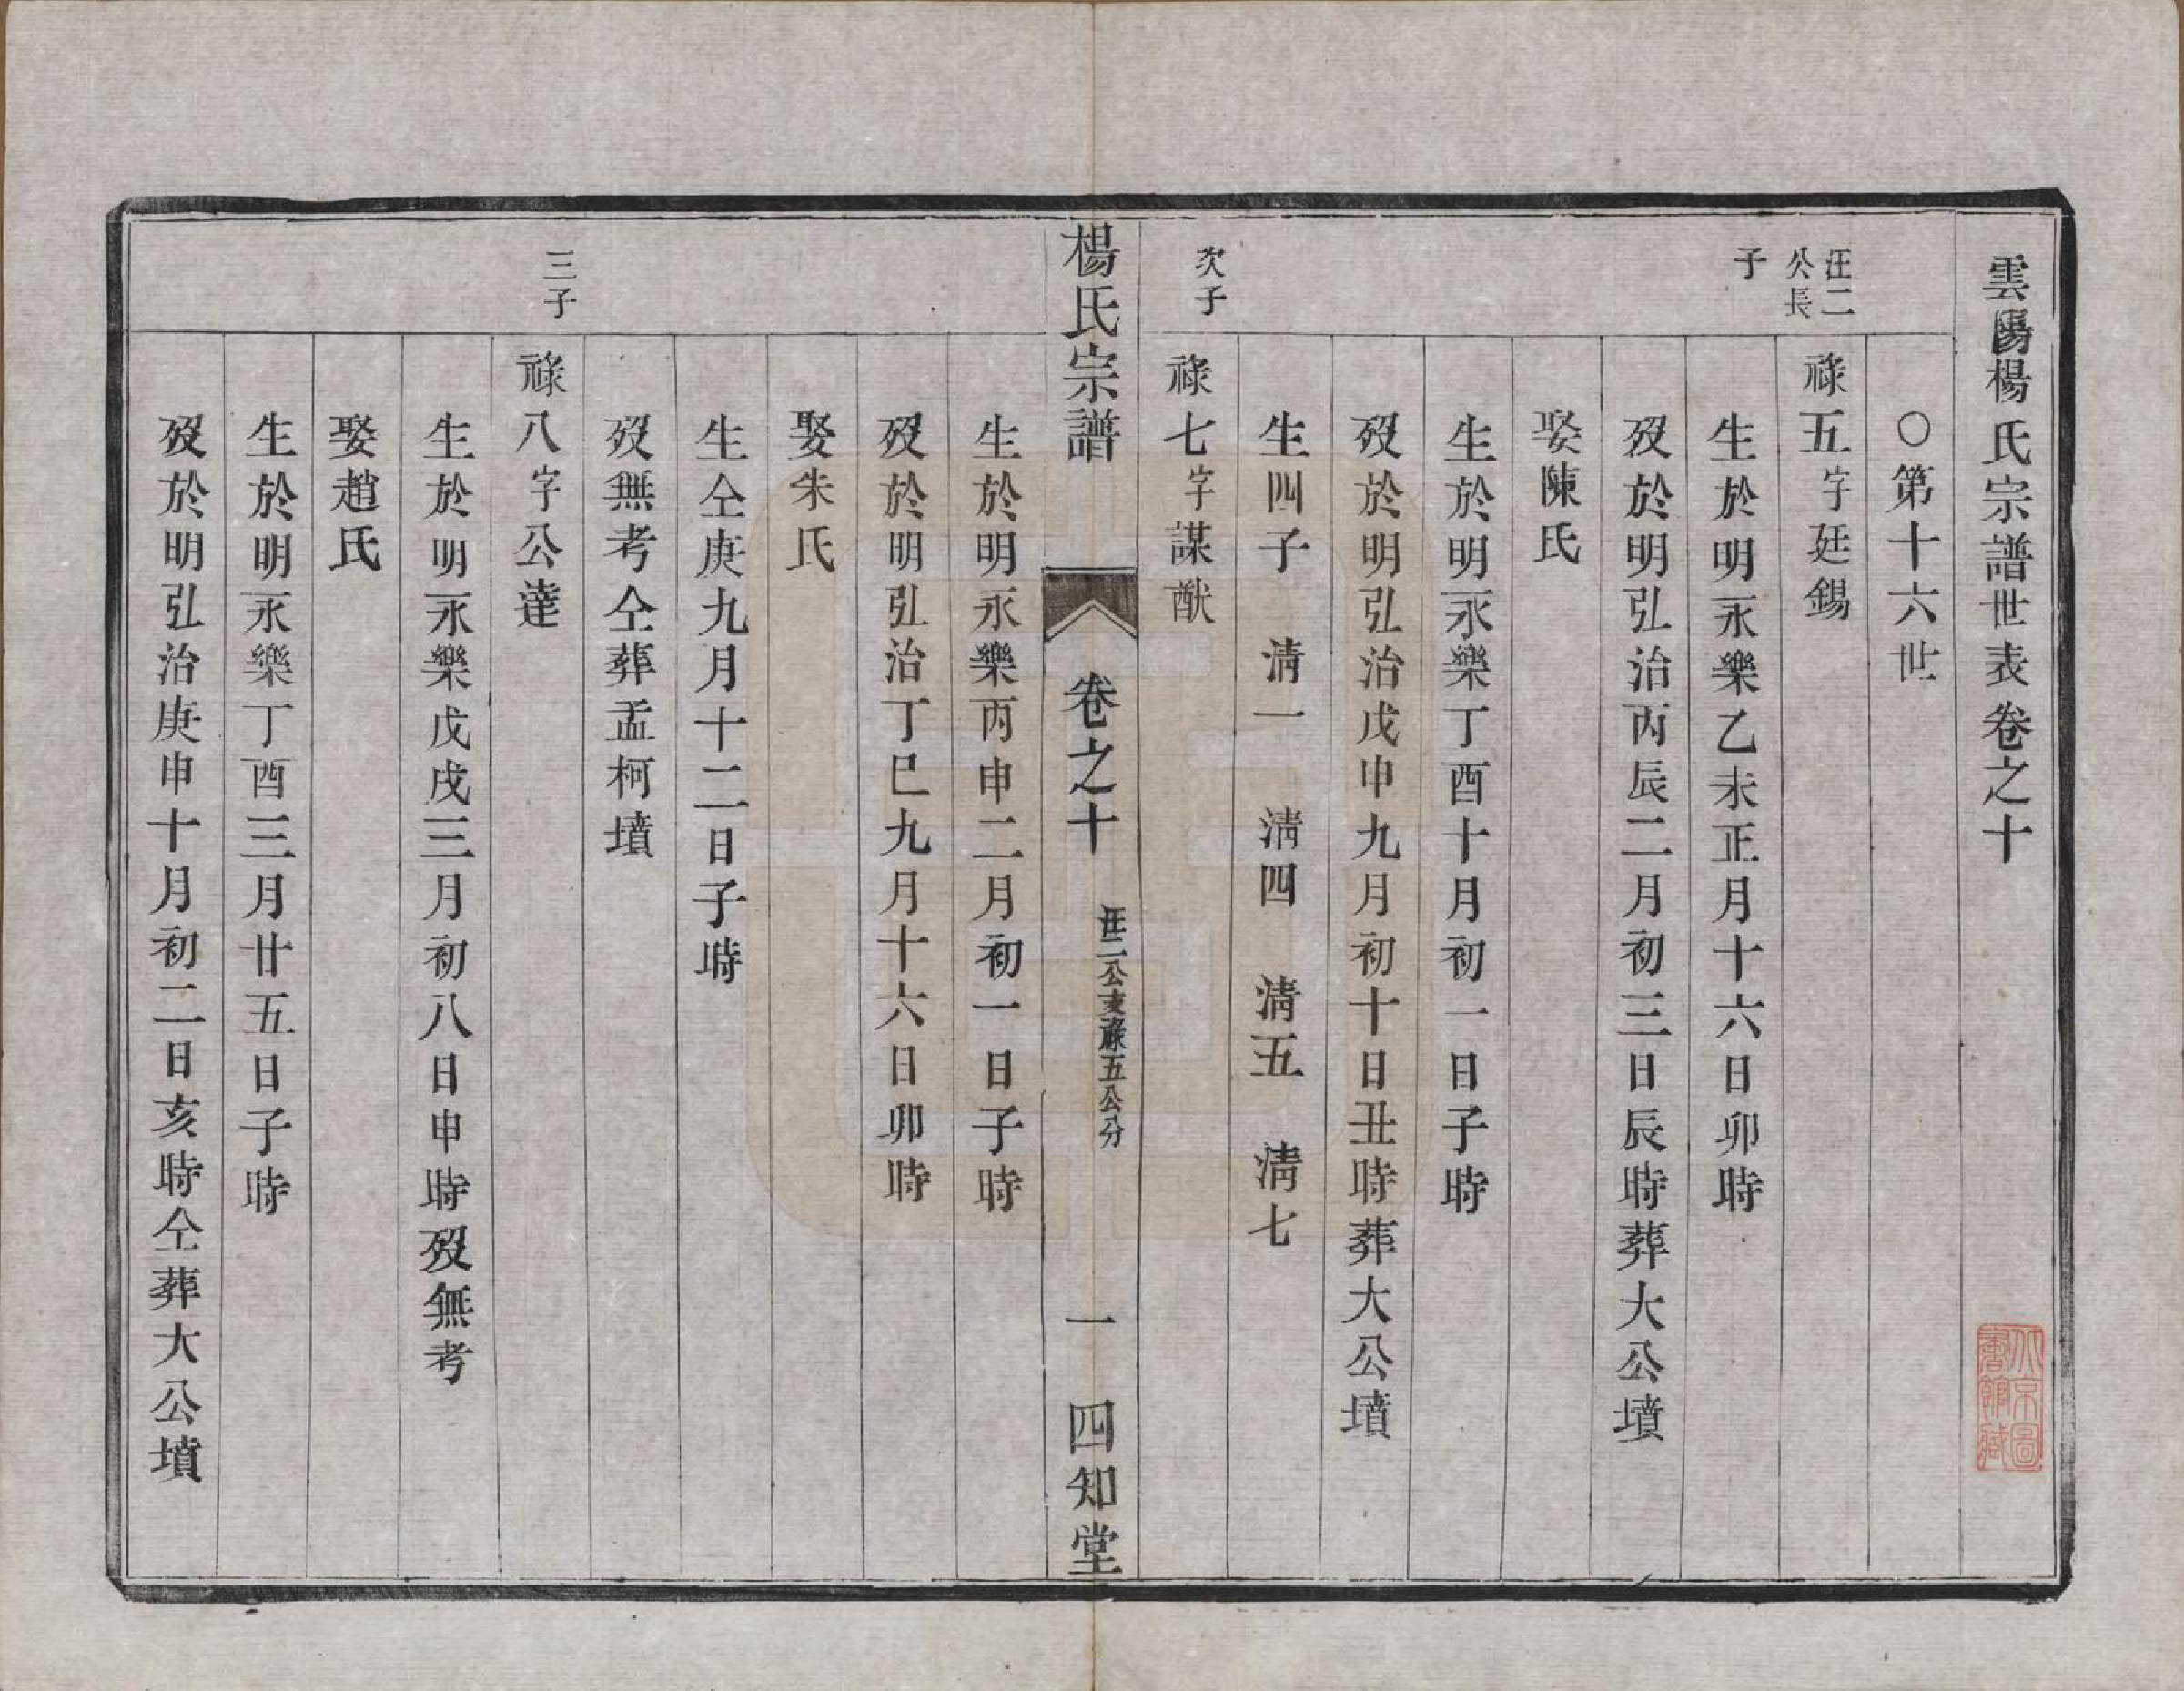 雲陽楊氏宗譜世表卷之十
〇第十六世
汪二公長子
祿五字廷錫
生於明永樂乙未正月十六日卯時
歿於明弘治丙辰二月初三日辰時葬大公墳
娶陳氏
生於明永樂丁酉十月初一日子時
歿於明弘治戊申九月初十日丑時葬大公墳
生四子　淸一　淸四　淸五　淸七
次子
祿七字謀猷
楊氏宗譜　卷之十　汪二公支祿五公分　一　四知堂
生於明永樂丙申二月初一日子時
歿於明弘治丁巳九月十六日卯時
娶朱氏
生仝庚九月十二日子時
歿無考仝葬孟柯墳
三子
祿八字公達
生於明永樂戊戌三月初八日申時歿無考
娶趙氏
生於明永樂丁酉三月廿五日子時
歿於明弘治庚申十月初二日亥時仝葬大公墳